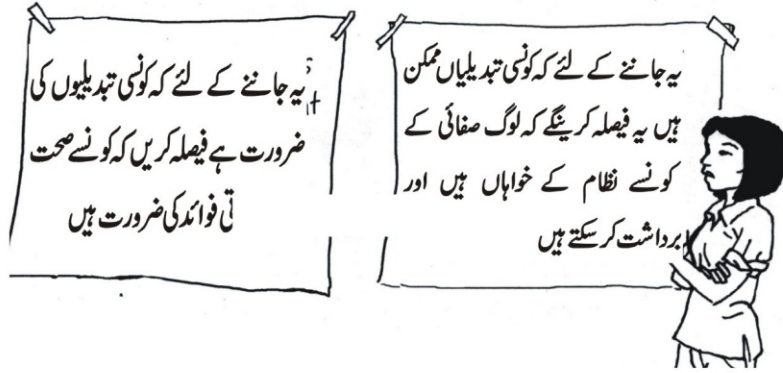 یہ جاننے کے لئے کہ کونسی تبدیلیاں ممکن
ہیں یہ فیصلہ کرینگے کہ لوگ صفائی کے
کونسے نظام کے خواہاں ہیں اور
برداشت کر سکتے ہیں
یہ جاننے کے لئے کہ کونسی تبدیلیوں کی
ضرورت ہے فیصلہ کریں کہ کونسے صحت
تی فوائد کی ضرورت ہیں